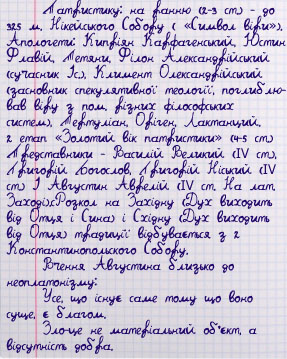 Патристику: на ранню (2-3 ст) - до
325 м. Нікейського Собору ( «Символ віри»).
Апологети: Кипріян Карфагенський, Юстин
Флавій, Тетяни, Філон Александрійський
(сучасник Іс), Климент Олександрійський
(засновник спекулятивної теології, поглиблю-
вав віру з пом. різних філософських
систем), Тертуліан, Оріген, Лактанций.
2 етап «Золотий вік патристики» (4-5 ст)
Представники - Василій Великий (IV ст),
Григорій Богослов, Григорій Ніський (IV
ст) І Августин Аврелій (IV ст. На лат.
Заході).Розкол на Західну (Дух виходить
від Отця і Сина) і Східну (Дух виходить
від Отця) традиції відбувається з 2
Константинопольского Собору.
Вчення Августина близько до
неоплатонізму:
Усе, що існує саме тому що воно
суще, є благом.
Зло-це не матеріальний об'єкт, а
відсутність добра.